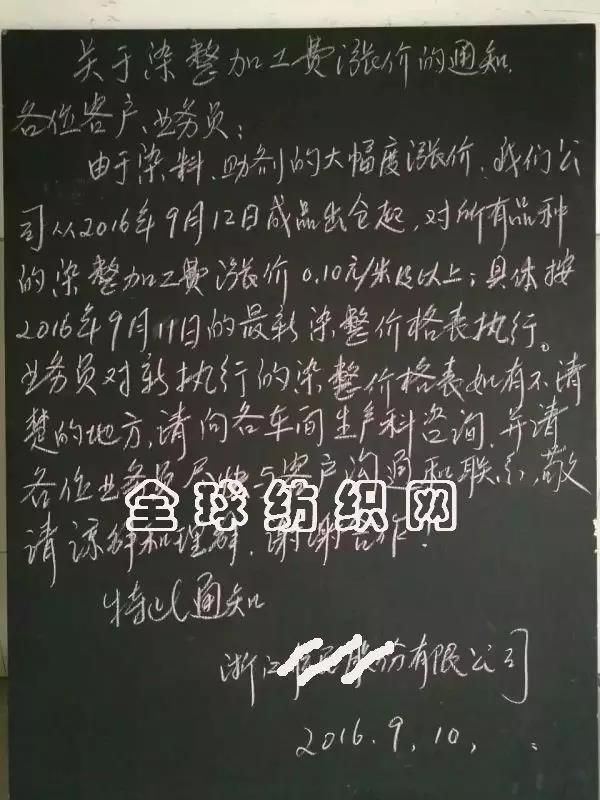 关于染整加工费涨价的通知
各位客户、业务员：
由于染料、助剂的大幅度涨价，我们公
司从2016年9月12日成品出仓起，对所有品种
的染整加工费涨价0.10元/米及以上；具体按
2016年9月11日的最新染整价格表执行。
业务员对新执行的染整价格表如有不请
楚的地方，请向各车间生产科咨询，并请
各位业务员 与客户沟通和联系，敬
全球纺织网
请谅解和理解，谢谢合作！
特此通知
浙江 股份有限公司
2016.9.10.